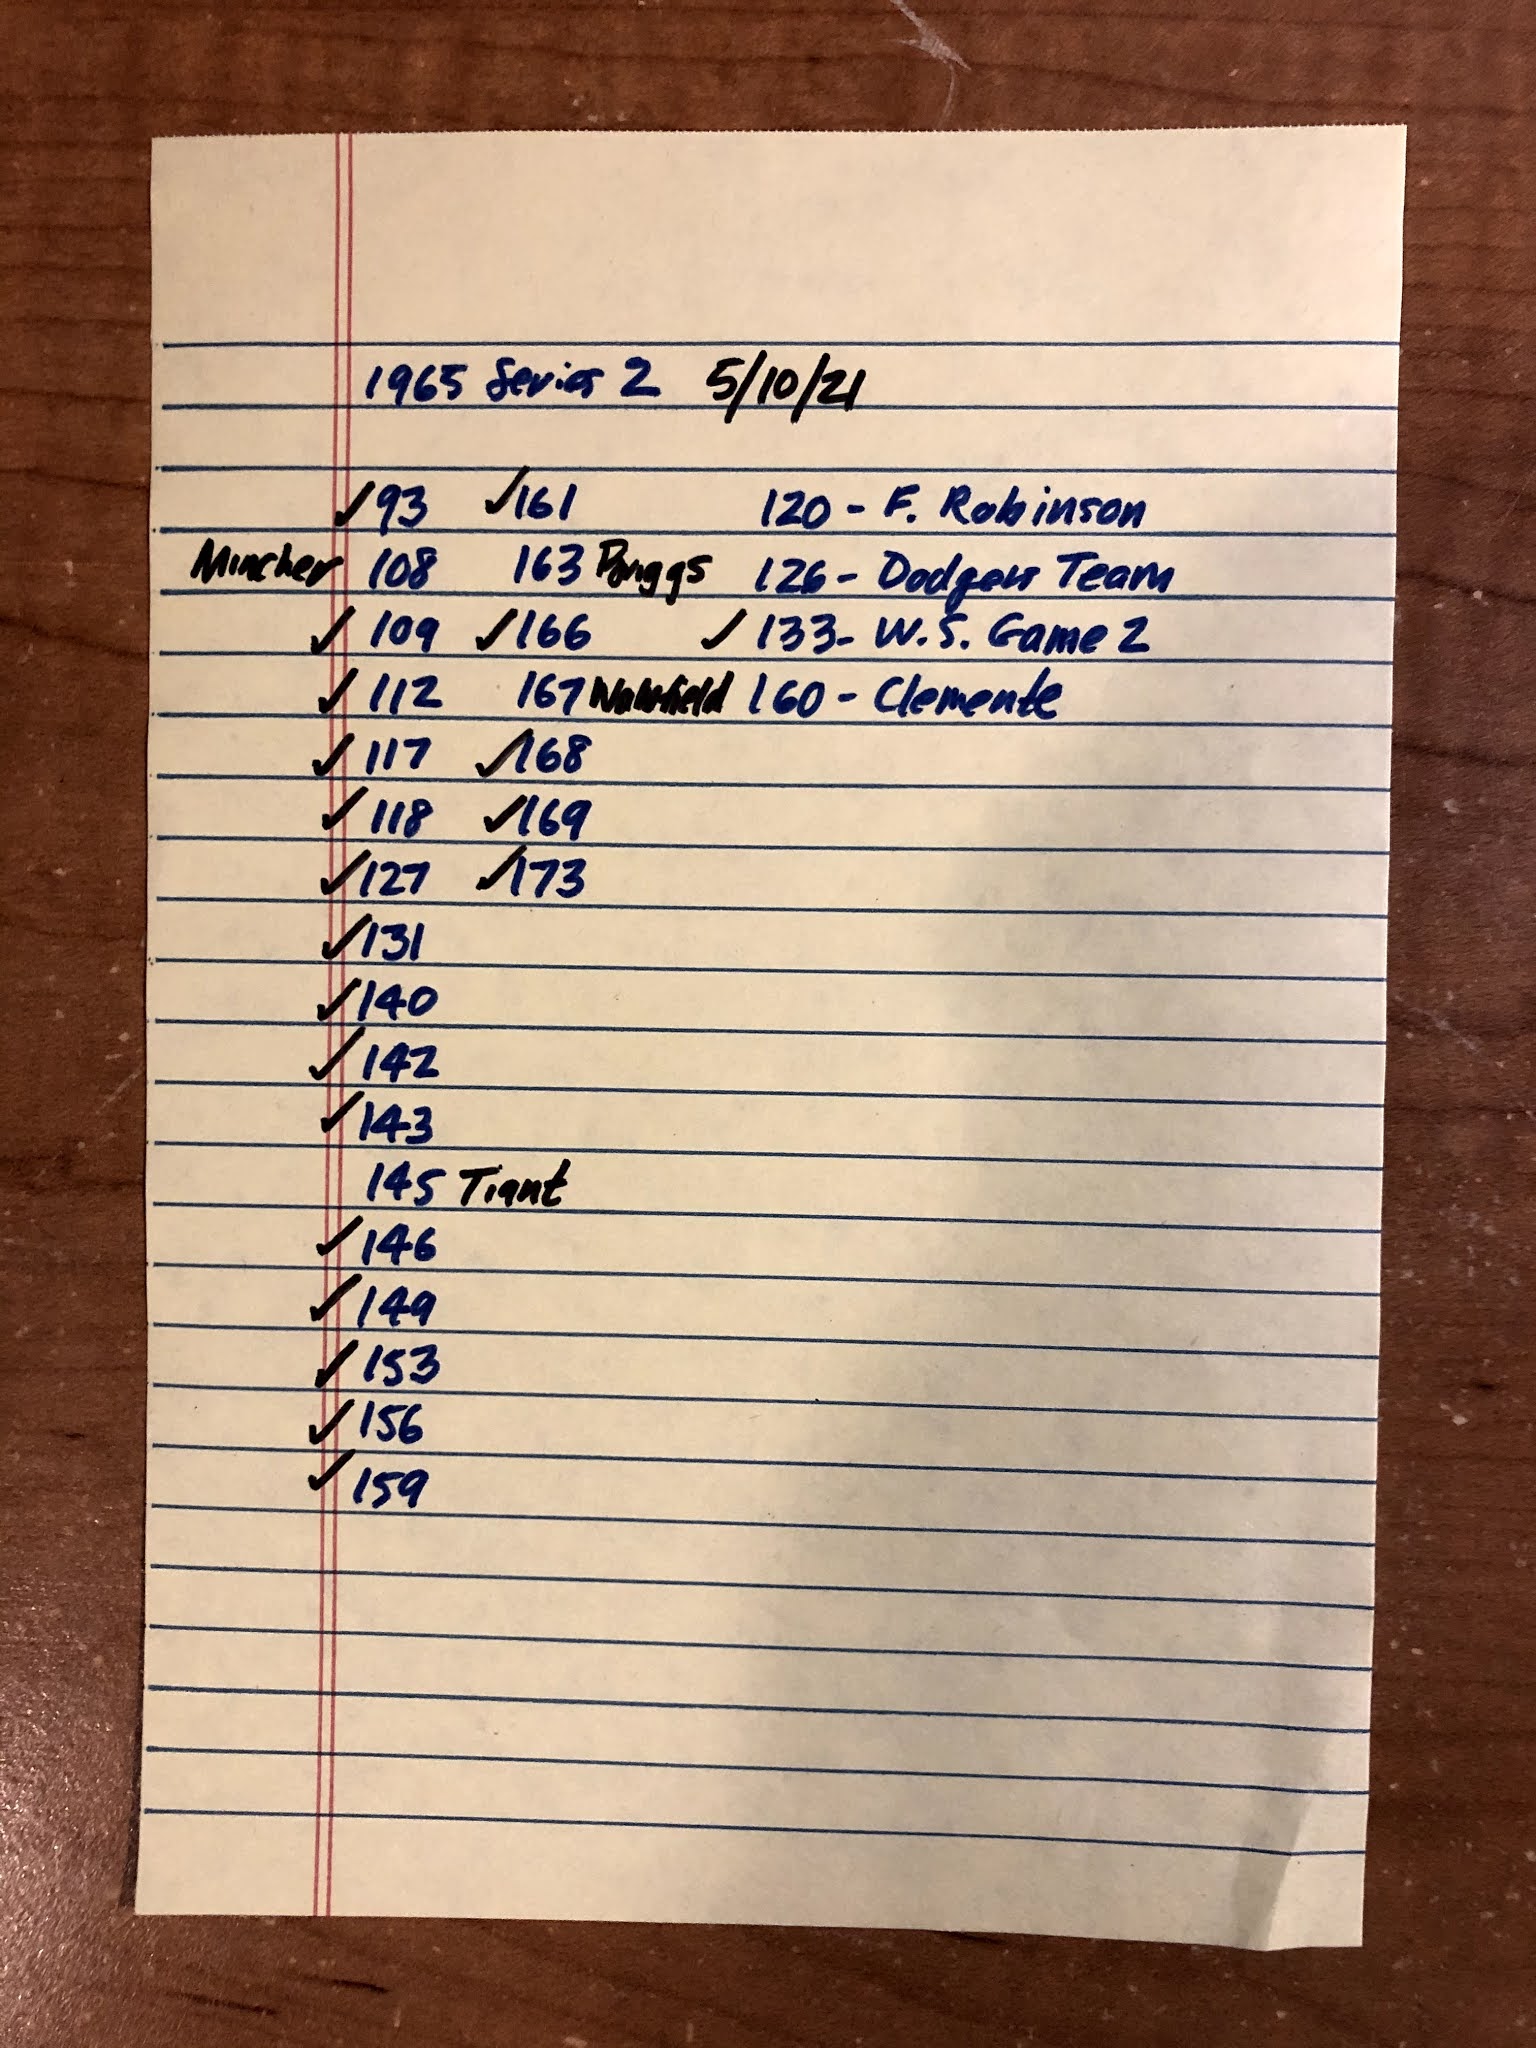 1965 Series 2 5/10/21
✓ 93 ✓ 161 120 - F. Robinson
Mincher 108 163 Briggs 126 - Dodgers Team
✓ 109 ✓ 166 ✓ 133 - W.S. Game 2
✓ 112 167 Wakefield 160 - Clemente
✓ 117 ✓ 168
✓ 118 ✓ 169
✓ 127 ✓ 173
✓ 131
✓ 140
✓ 142
✓ 143
145 Tiant
✓ 146
✓ 149
✓ 153
✓ 156
✓ 159